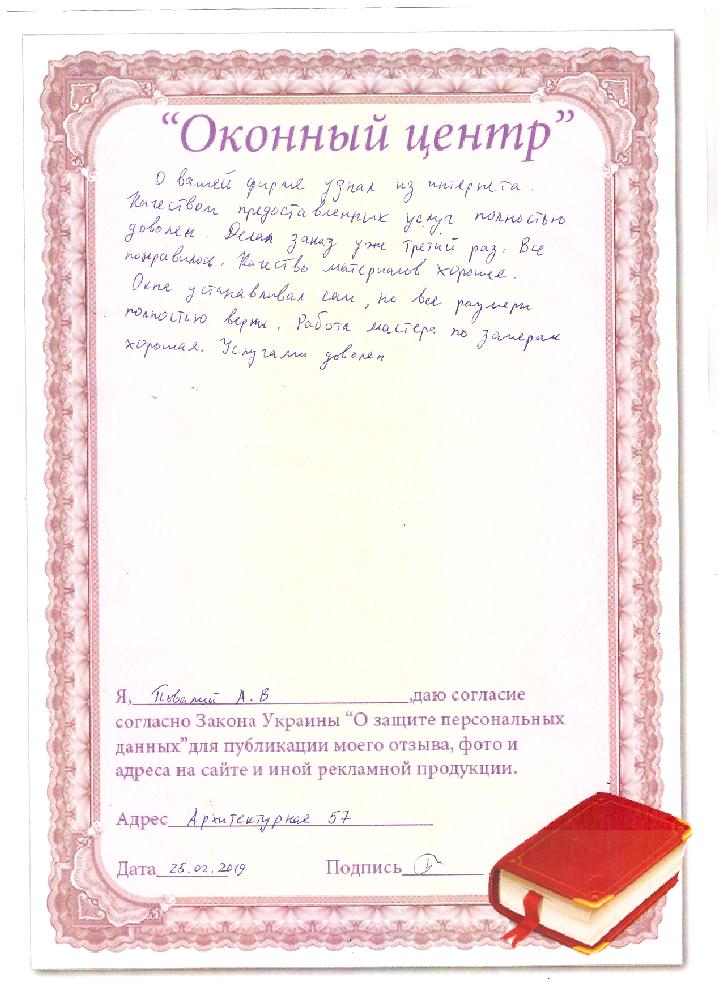 “Оконный центр”
О вашей фирме узнал из интернета.
Качеством предоставленных услуг полностью
доволен. Делал заказ уже третий раз. Все
понравилось. Качество материалов хорошее.
Окна устанавливал сам, но все размеры
полностью верны. Работа мастера по замерам
хорошая. Услугами доволен
Я, Повалий А.В ,даю согласие
согласно Закона Украины “О защите персональных
данных”для публикации моего отзыва, фото и
адреса на сайте и иной рекламной продукции.
Адрес Архитектурная 57
Дата 25.02.2019 Подпись